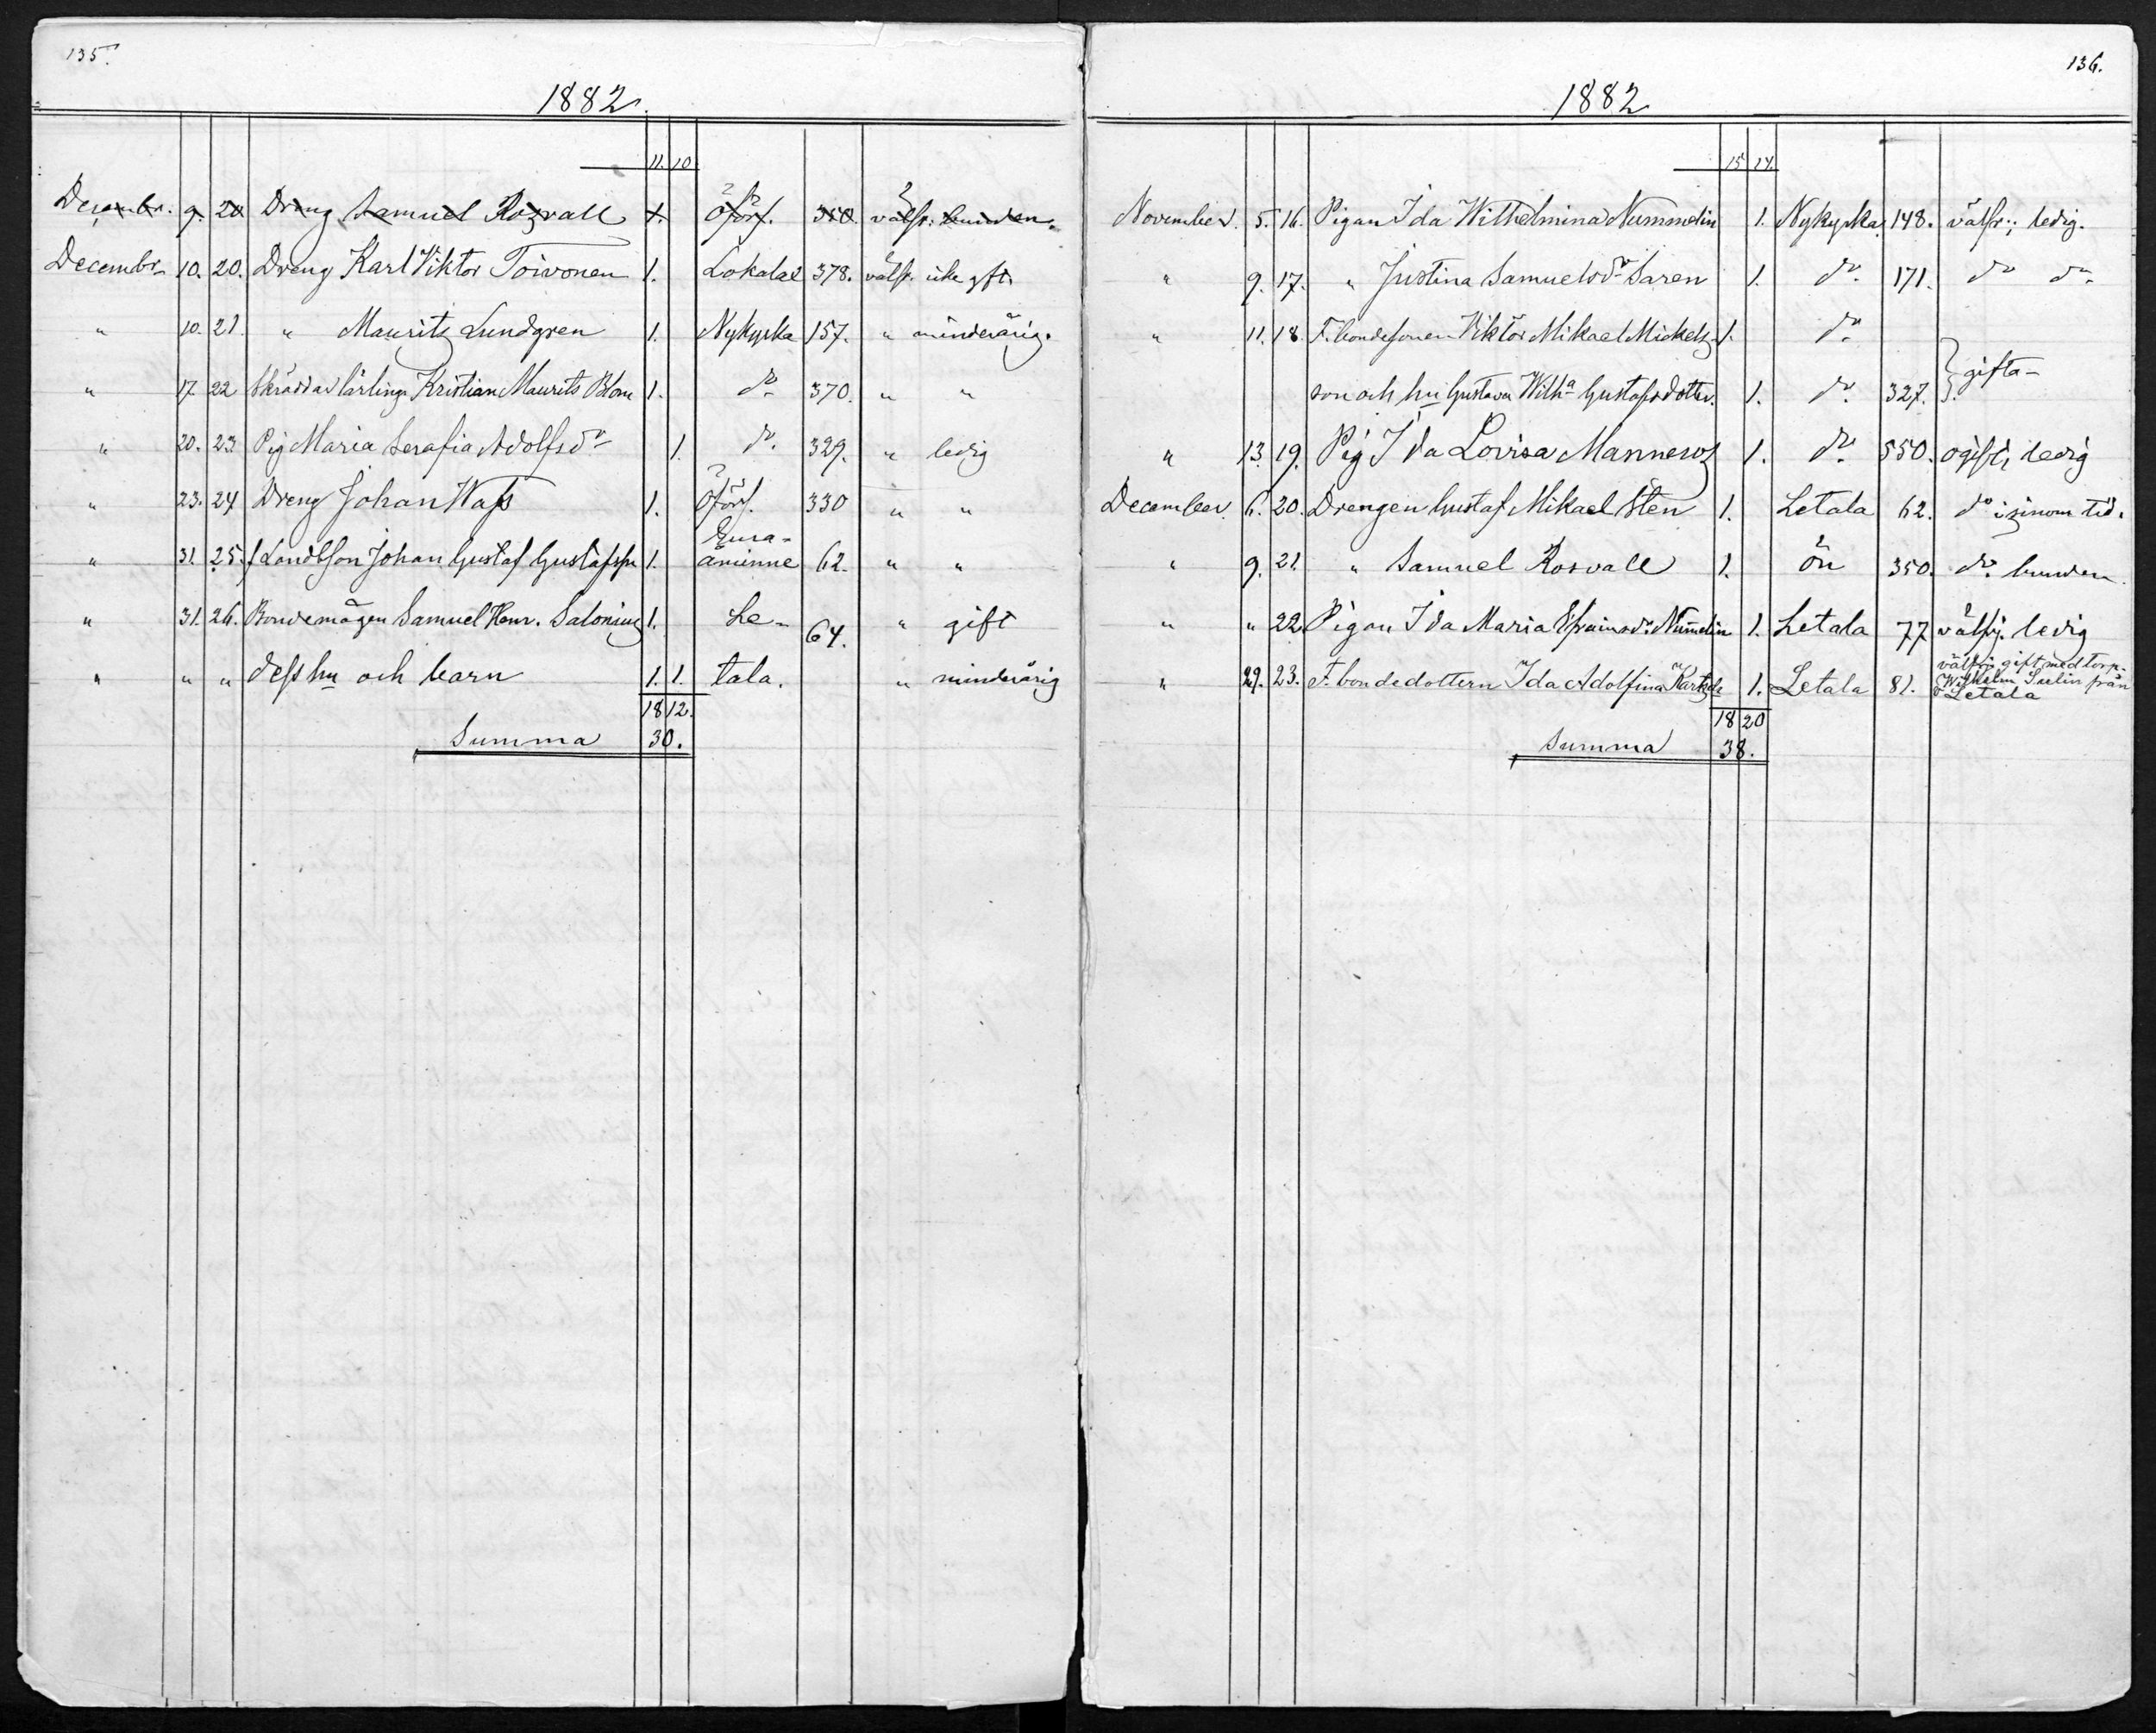 135.
1882.
11. 10.
Decembr. 9. 20 Dräng Samuel Rosvall 1. Öförs. 350. välfr. bunden.
Decembr. 10. 20. Dreng Karl Viktor Toivonen 1. Lokalaks 378. välfr. icke gft.
" 10. 21. " Mauritz Lundgren 1. Nykyrka 157. " minderårig.
" 17. 22 Skräddar lärlinge Kristian Maurits Blom 1. do 370. " "
" 20. 23 Pig Maria Serafia Adolfsdr 1. do. 329. " ledig
" 23. 24 Dreng Johan Wass 1. Öförs. 330 " "
" 31. 25. f Landbson Johan Gustaf Gustafsson 1. Euraåminne 62. " "
" 31. 26. Bondemågen Samuel Henr. Salonius 1. Le- 64. " gift
" " " dess hu och barn 1. 1. tala. " minderårig
18 12.
Summa 30.
136.
1882
15 14.
November. 5. 16. Pigan Ida Wilhelmina Nummelin 1. Nykyrka 148. välfr.; ledig.
" 9. 17. " Justina Samuelsdr Saren 1. do. 171. do do
" 11. 18. F. bondesonen Viktor Mikael Mickels- 1. do
son och hu Gustava Wilha Gustafsdotter. 1. do. 327. } gifta
" 13. 19. Pig Ida Lovisa Mannerus 1. do. 550. ogift, ledig
December 6. 20. Drengen Gustaf Mikael Sten 1. Letala 62. do i sinom tid.
" 9. 21. " Samuel Rosvall 1. ön 350. do. bunden.
" " 22. Pigan Ida Maria Efraimsdr. Nummelin 1. Letala 77 välfrj. ledig
" 29. 23. F. bondedottern Ida Adolfina 1. Letala 81. välfrj. gift med torp. Wilhelm från Letala
18 20
Summa 38.